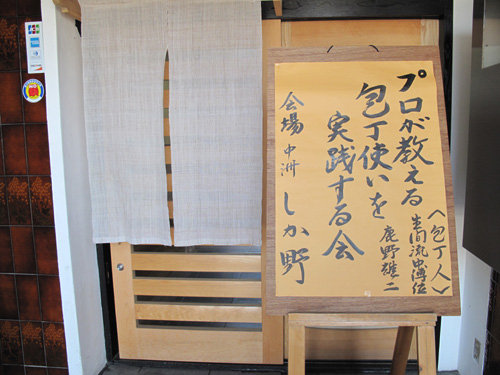 プロが教える
包丁使いを
実践する会
〈包丁人〉
生間流中溥位
鹿野雄二
会場 中洲 しか野
JCB